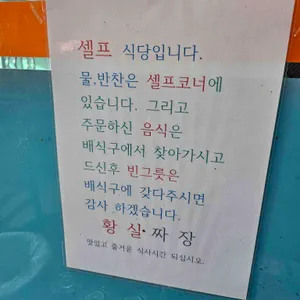 셀프 식당입니다.
물,반찬은 셀프코너에
있습니다. 그리고
주문하신 음식은
배식구에서 찾아가시고
드신후 빈그릇은
배식구에 갖다주시면
감사 하겠습니다.
황실·짜장
맛있고 즐거운 식사시간 되십시오.